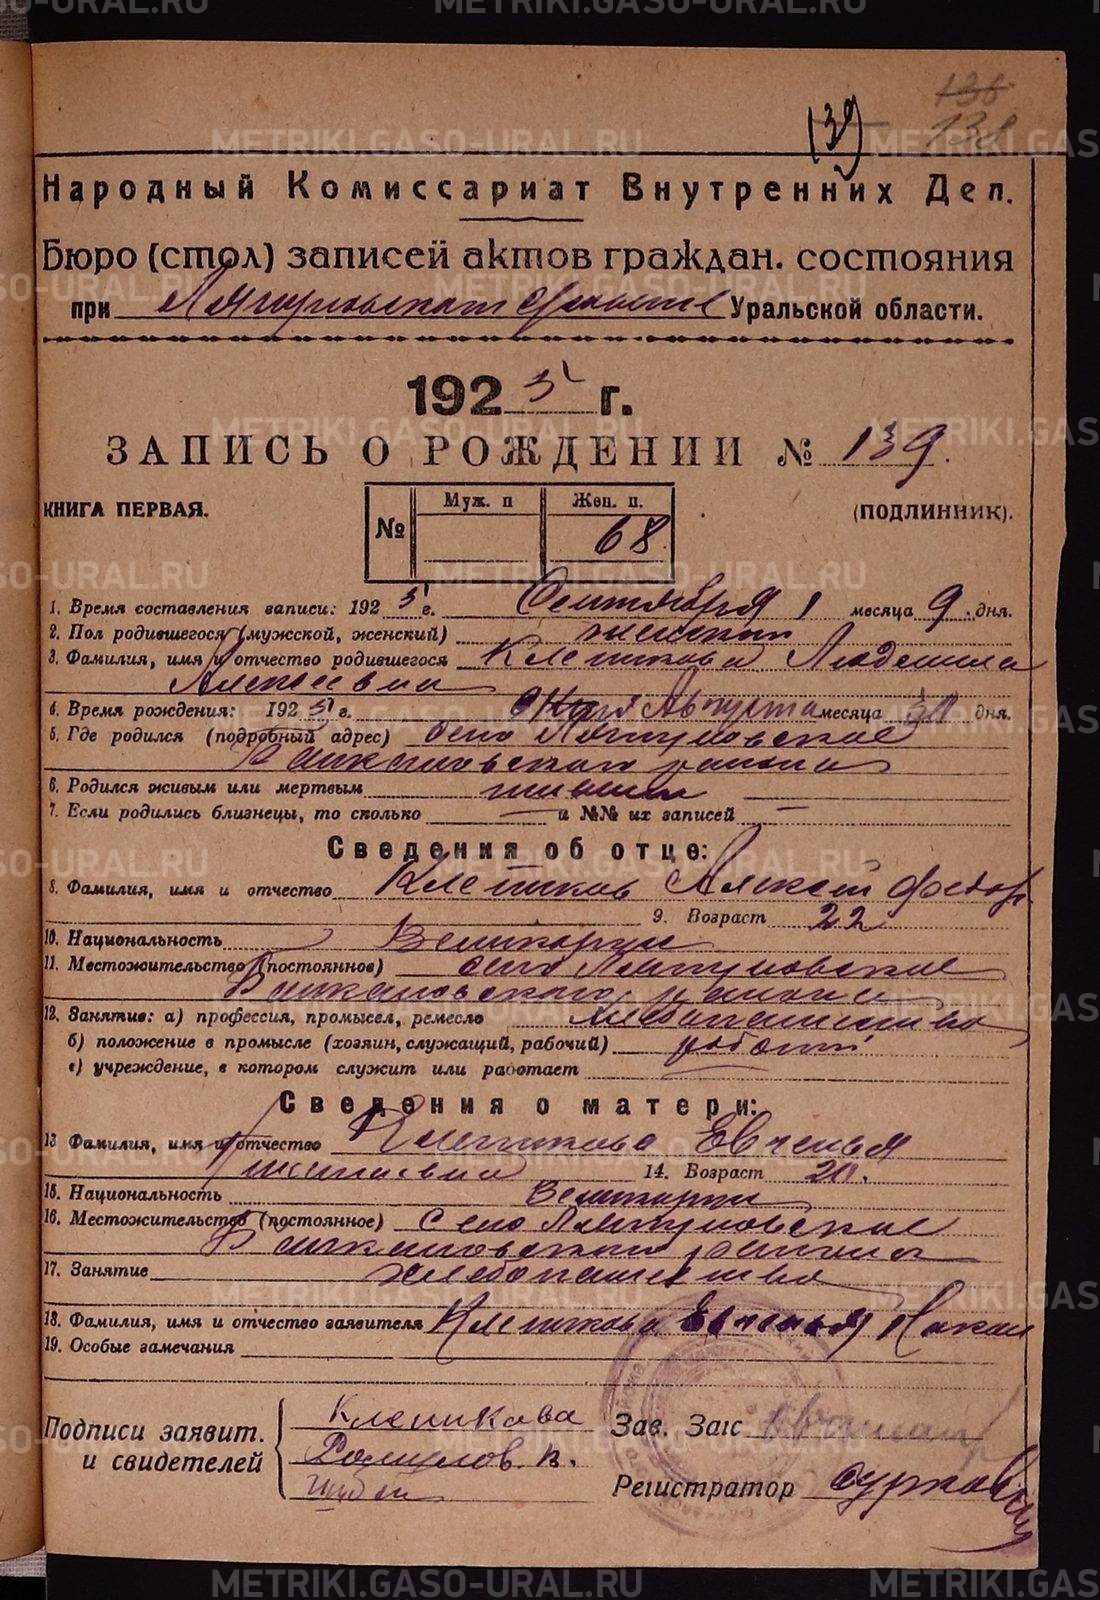 138
139 138
Народный Комиссариат Внутренних Дел.
Бюро (стол) записей актов граждан. состояния
при Уральской области.
1925 г.
ЗАПИСЬ О РОЖДЕНИИ № 139.
КНИГА ПЕРВАЯ. № Муж. п Жен. п. (ПОДЛИННИК).
68
1. Время составления записи: 1925 г. Сентября месяца 9 дня.
2. Пол родившегося (мужской, женский) женский
3. Фамилия, имя и отчество родившегося Клепикова Людмила
Алексеевна
4. Время рождения: 1925 г. Августа месяца 30 дня.
5. Где родился (подробный адрес) село Ляпуновское
Байкаловского района
6. Родился живым или мертвым живым
7. Если родились близнецы, то сколько — и №№ их записей —
Сведения об отце:
8. Фамилия, имя и отчество Клепиков Алексей Федор.
9. Возраст 22
10. Национальность Великорус
11. Местожительство (постоянное) село Ляпуновское
Байкаловского района
12. Занятие: а) профессия, промысел, ремесло хлебопашество
б) положение в промысле (хозяин, служащий, рабочий)
в) учреждение, в котором служит или работает
Сведения о матери:
13 Фамилия, имя и отчество Клепикова Евгенья
14. Возраст 20.
15. Национальность Великорус
16. Местожительство (постоянное) Село Ляпуновское
Байкаловского района
17. Занятие хлебопашество
18. Фамилия, имя и отчество заявителя Клепикова Евгенья
19. Особые замечания
Подписи заявит. и свидетелей
Клепикова
Зав. Загс
Регистратор
METRIKI.GASO-URAL.RU